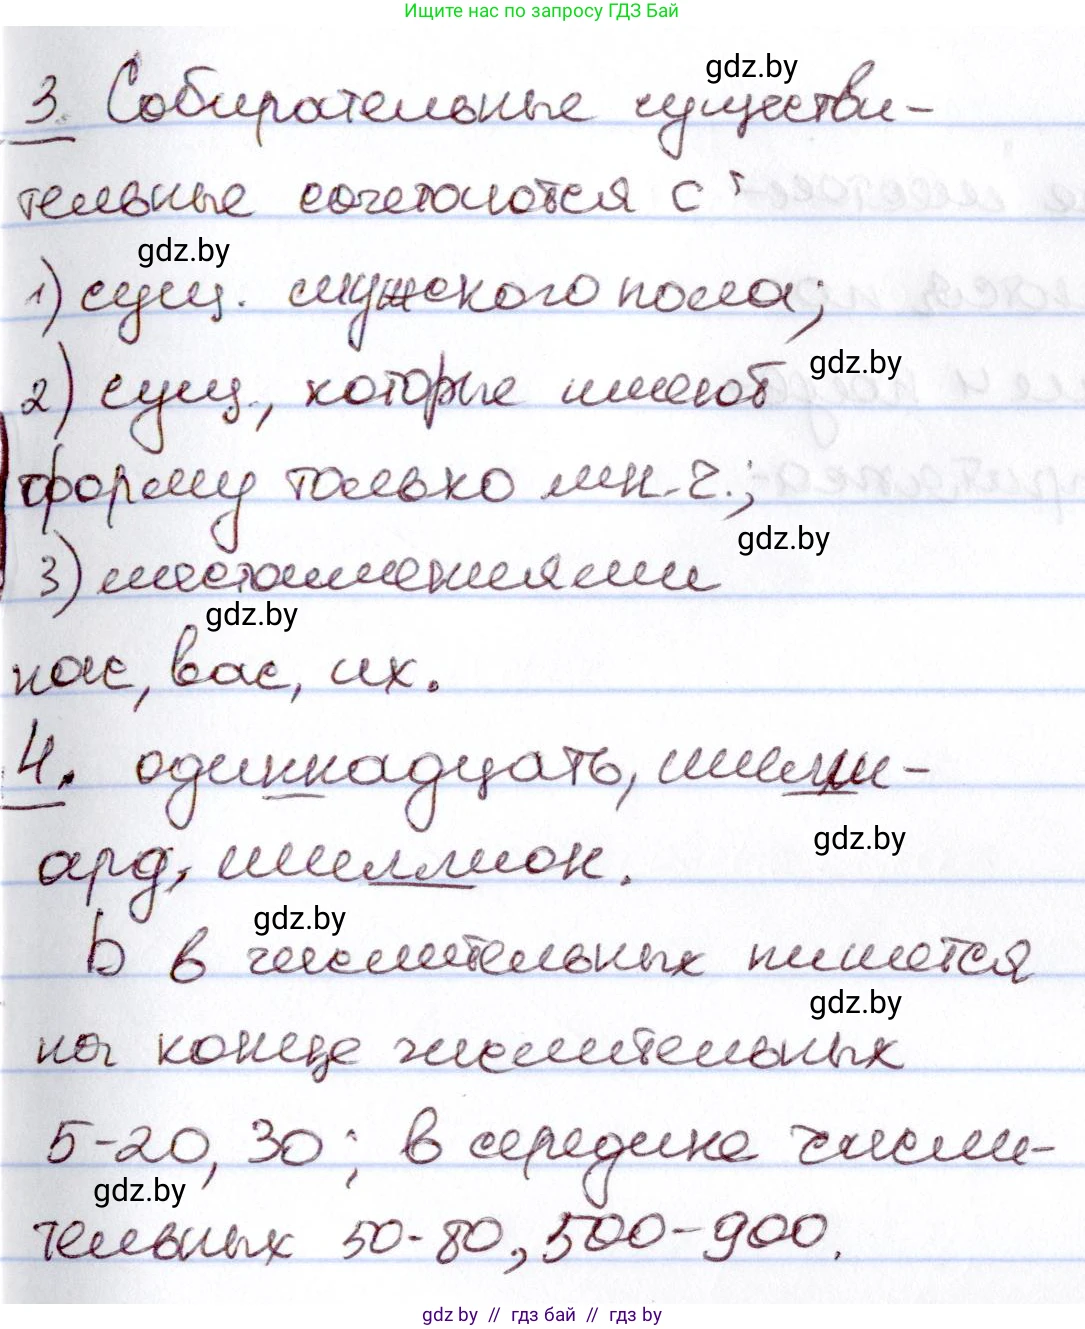 Ищите нас по запросу ГДЗ Бай
gdz.by
3. Собирательные существи-
тельные сочетаются с:
gdz.by
1) сущ. мужского пола;
gdz.by
2) сущ., которые имеют
форму только мн.ч.;
gdz.by
3) местоимениями
gdz.by
нас, вас, их.
4. одиннадцать, милли-
gdz.by
ард, миллион.
gdz.by
Ь в числительных пишется
gdz.by
на конце числительных
5-20, 30; в середине числи-
gdz.by
тельных 50-80, 500-900.
gdz by // гдз бай // гдз by